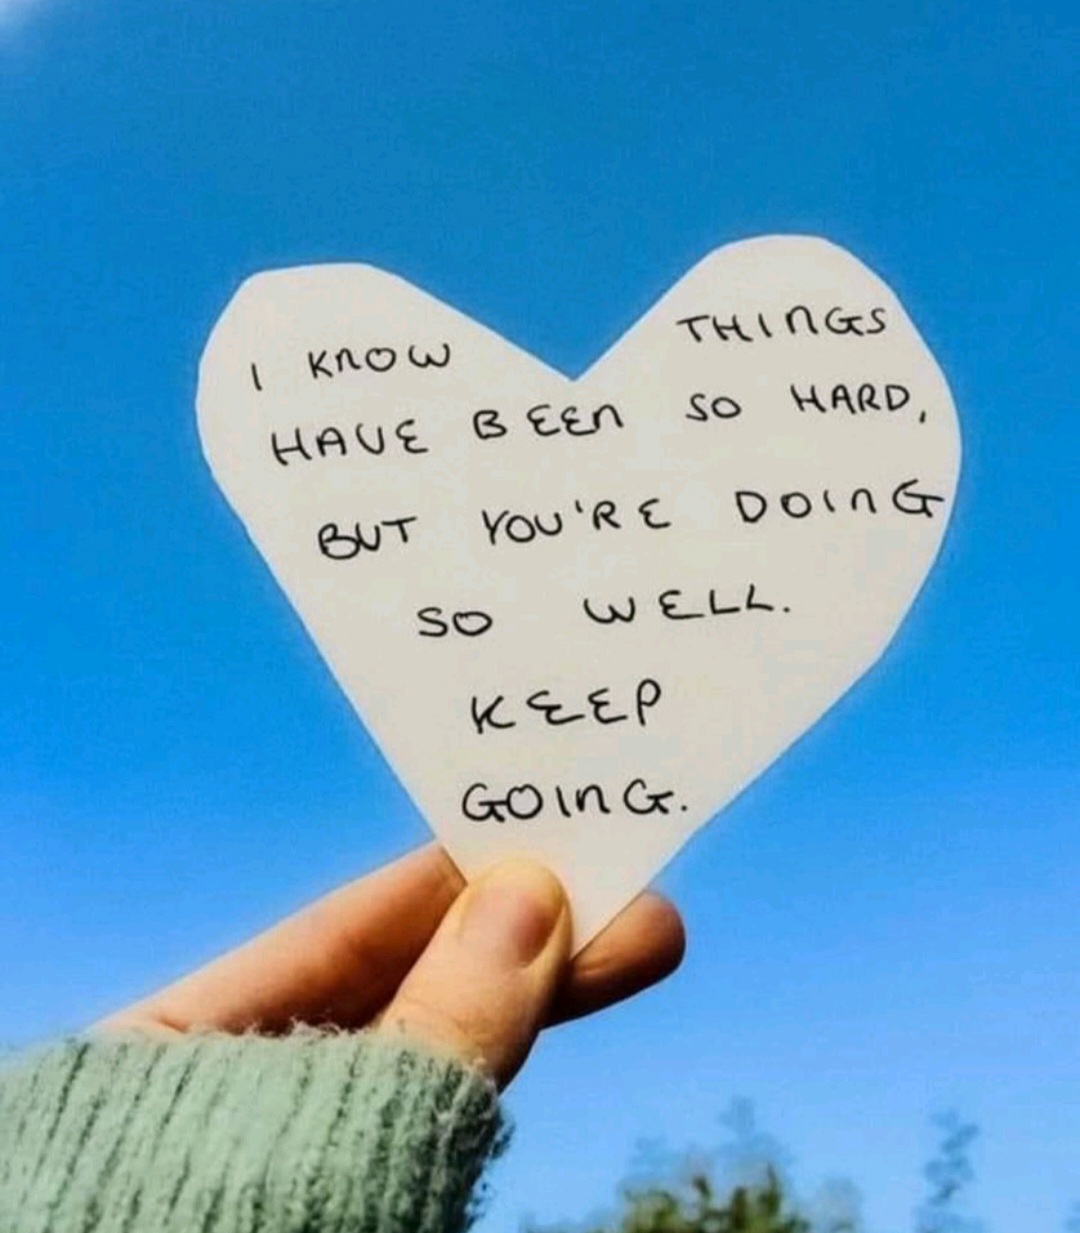 I KNOW THINGS
HAVE BEEN SO HARD,
BUT YOU'RE DOING
SO WELL.
KEEP
GOING.